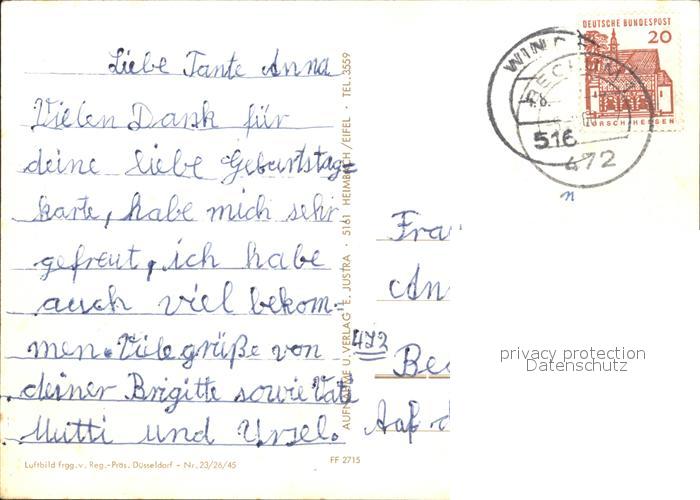 Liebe Tante Anna
Vielen Dank für
deine liebe Geburtstag=
karte, habe mich sehr
gefreut, ich habe
auch viel bekom-
men. Viele grüße von
deiner Brigitte sowie Vati
Mutti und Ursel.
Luftbild frgg. v. Reg.-Präs. Düsseldorf - Nr. 23/26/45
FF 2715
AUFNAHME U. VERLAG E. JUSTRA · 5161 HEIMBACH / EIFEL · TEL. 3559
DEUTSCHE BUNDESPOST
20
LORSCH · HESSEN
516
472
Fra
An
472
Be
Auf d
privacy protection
Datenschutz